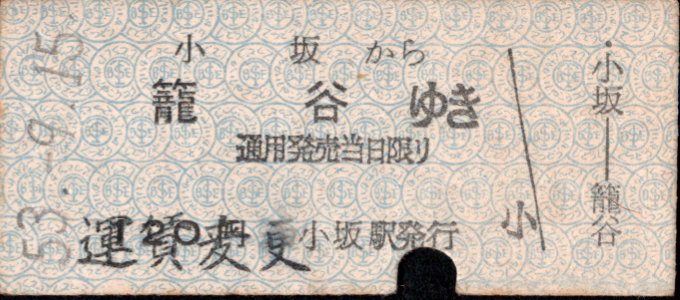 53.-9.15
小坂から
籠谷ゆき
通用発売当日限り
120円 小坂駅発行
運賃変更
小
小坂―籠谷